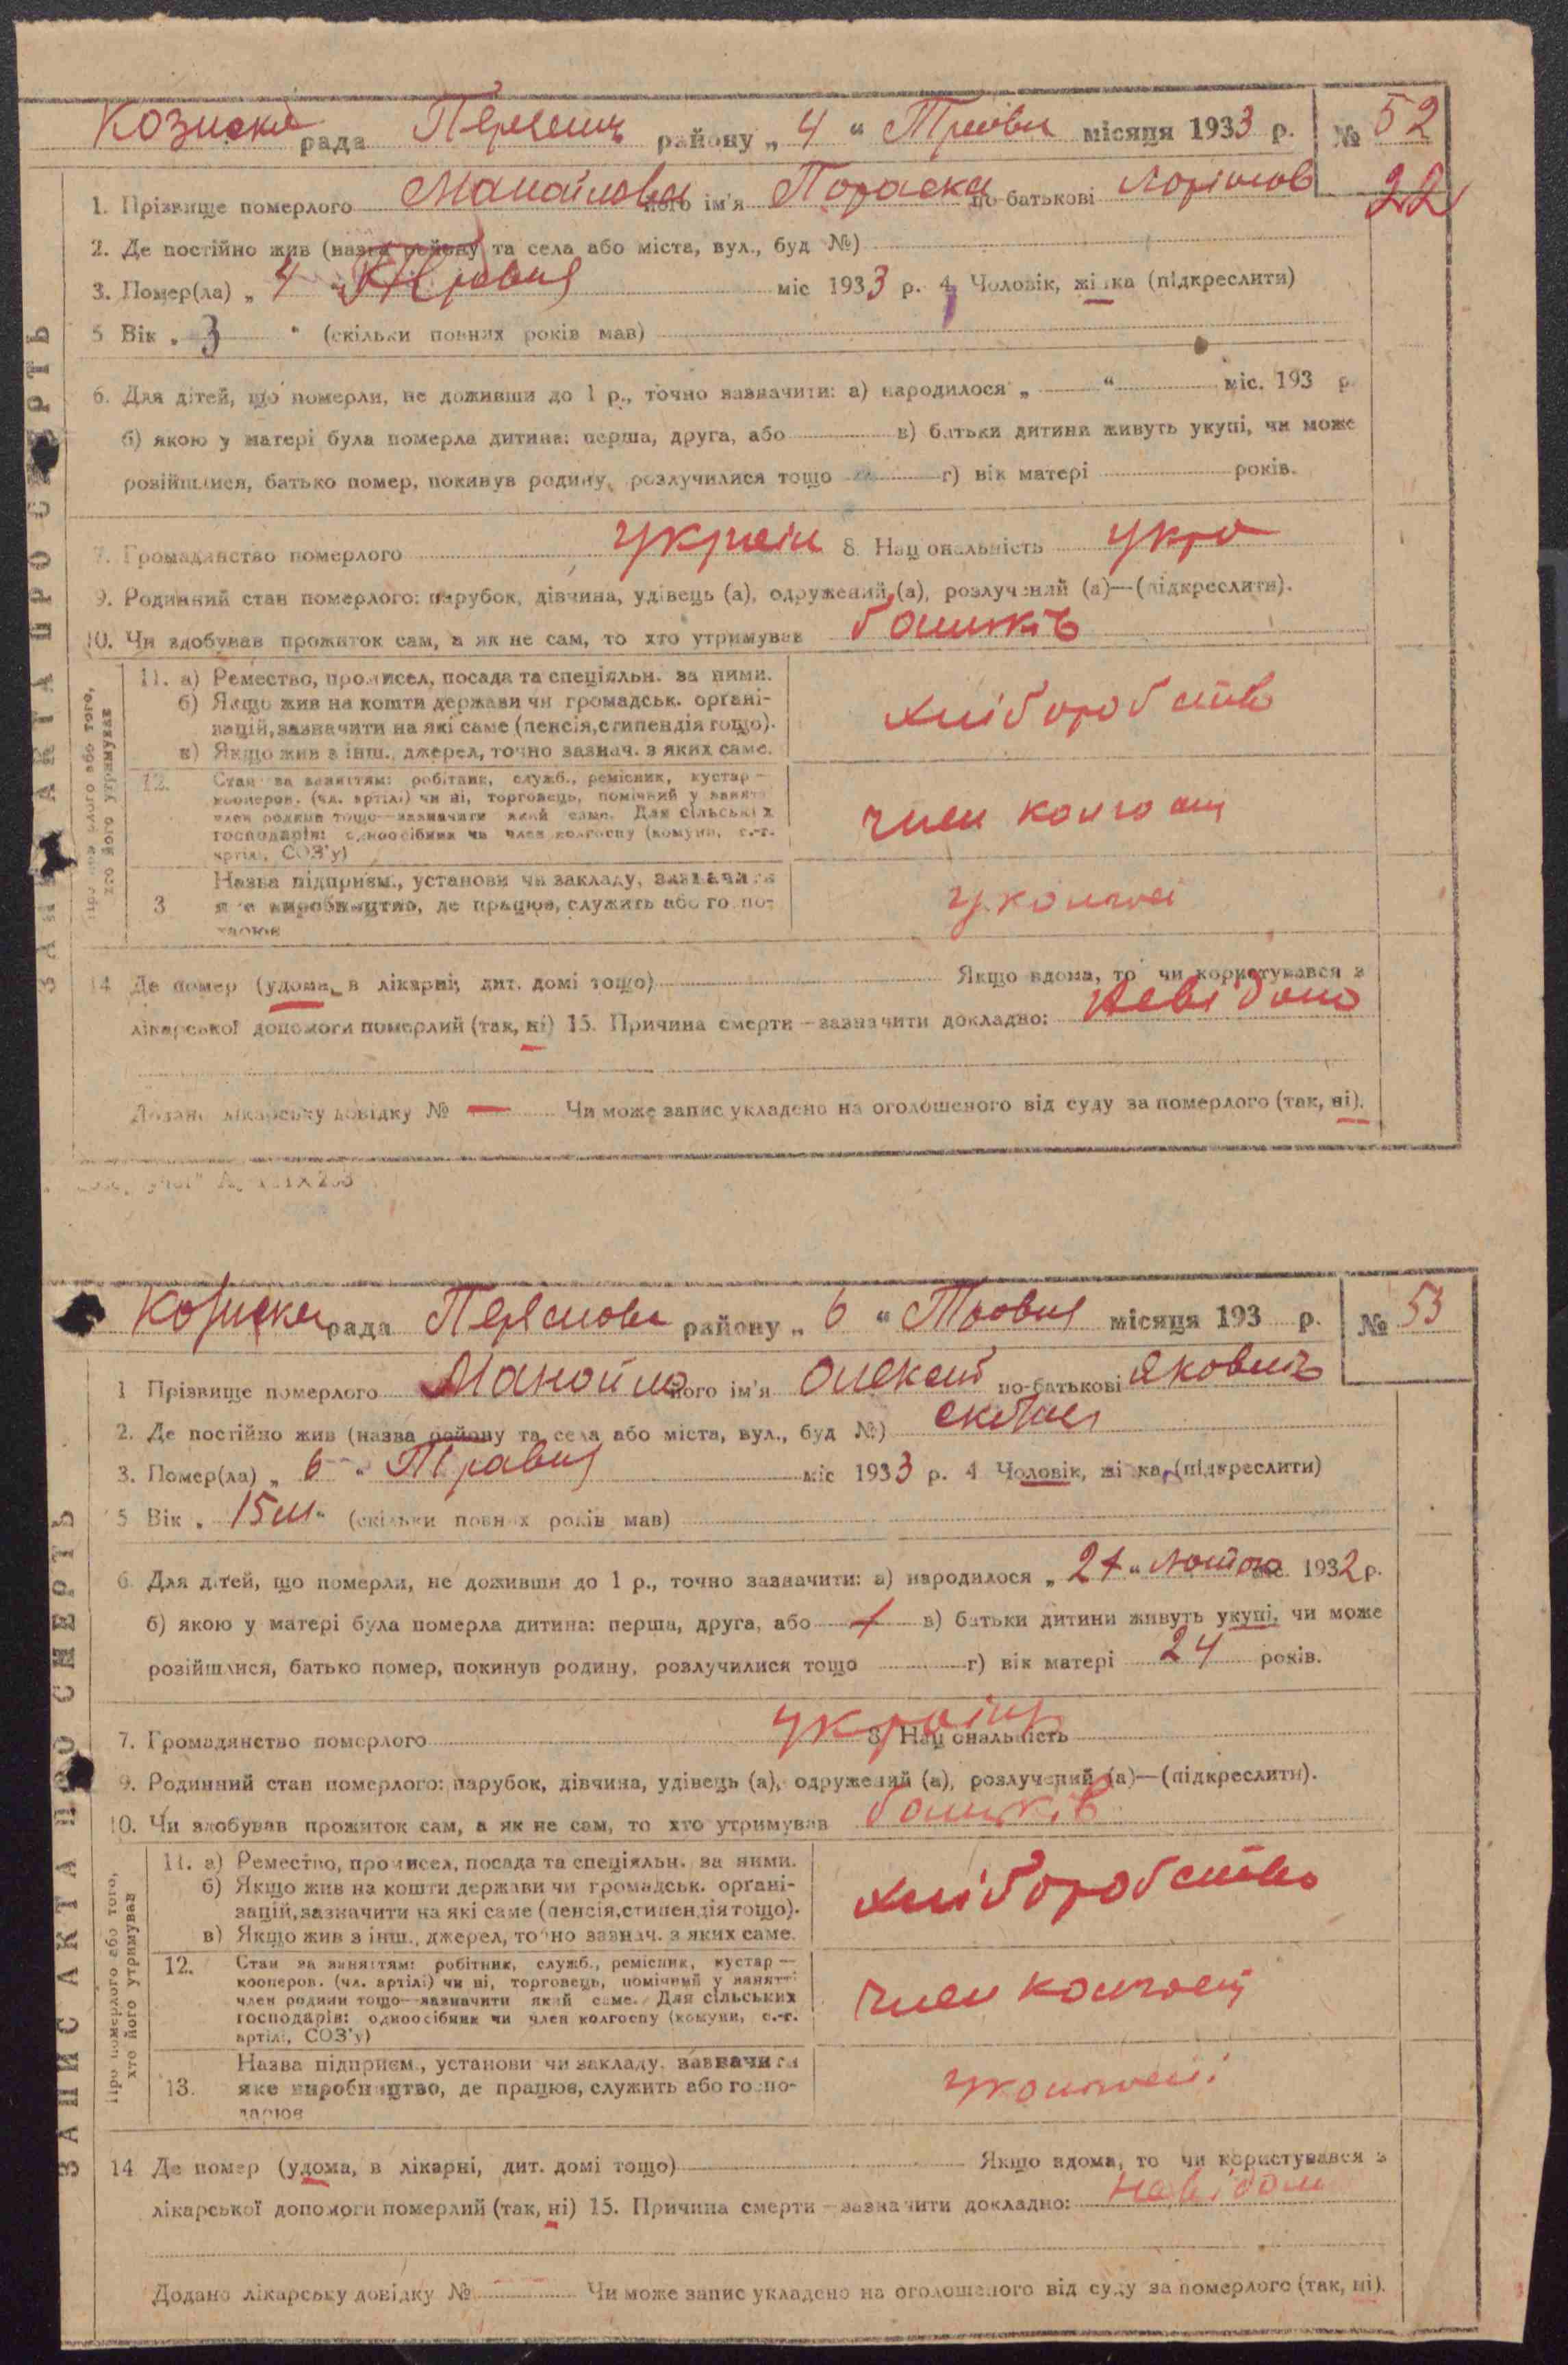 Козиска рада район у „ 4 “ Травня місяця 1933 р. № 52
22
1. Прізвище померлого Манойлова його ім'я Параска по-батькові
2. Де постійно жив (назва району та села або міста, вул., буд №)
3. Помер(ла) „ 4 “ Травня міс 1933 р. 4 Чоловік, жінка (підкреслити)
5 Вік „ 3 “ (скільки повних років мав)
6. Для дітей, що померли, не доживши до 1 р., точно зазначити: а) народилося „ “ міс. 193 р.
б) якою у матері була померла дитина: перша, друга, або в) батьки дитини живуть укупі, чи може
розійшлися, батько помер, покинув родину, розлучилися тощо г) вік матері років.
7. Громадянство померлого україн 8. Національність укра
9. Родинний стан померлого: парубок, дівчина, удівець (а), одружений (а), розлучений (а)—(підкреслити).
10. Чи здобував прожиток сам, а як не сам, то хто утримував батьків
ЗАПИС АКТА ПРО СМЕРТЬ
Про померлого або того, хто його утримував
11. а) Ремество, промисел, посада та спеціяльн. за ними.
б) Якщо жив на кошти держави чи громадськ. органі-
зацій, зазначити на які саме (пенсія, стипендія тощо).
в) Якщо жив з інш., джерел, точно зазнач. з яких саме.
хліборобство
12. Стан за заняттям: робітник, служб., ремісник, кустар —
кооперов. (чл. артілі) чи ні, торговець, помічний у занятті
член родини тощо—зазначити який саме. Для сільських
господарів: одноосібник чи член колгоспу (комуни, с.-г.
артілі, СОЗ'у)
член колгоспу
3 Назва підприєм., установи чи закладу, зазначити
яке виробництво, де працює, служить або госпо-
дарює
у колгоспі
14 Де помер (удома, в лікарні, дит. домі тощо) Якщо вдома, то чи користувався з
лікарської допомоги померлий (так, ні) 15. Причина смерти — зазначити докладно: Невідомо
Додано лікарську довідку № — Чи може запис укладено на оголошеного від суду за померлого (так, ні).
Козиска рада район у „ 6 “ Травня місяця 193 р. № 53
1 Прізвище померлого Манойло його ім'я Олексій по-батькові Якович
2. Де постійно жив (назва району та села або міста, вул., буд №)
3. Помер(ла) „ 6 “ Травня міс 1933 р. 4 Чоловік, жінка (підкреслити)
5 Вік „ 15 м “ (скільки повних років мав)
6. Для дітей, що померли, не доживши до 1 р., точно зазначити: а) народилося „ “ Лютого міс. 1932 р.
б) якою у матері була померла дитина: перша, друга, або 1 в) батьки дитини живуть укупі, чи може
розійшлися, батько помер, покинув родину, розлучилися тощо г) вік матері 24 років.
7. Громадянство померлого україн 8. Національність
9. Родинний стан померлого: парубок, дівчина, удівець (а), одружений (а), розлучений (а)—(підкреслити).
10. Чи здобував прожиток сам, а як не сам, то хто утримував батьків
ЗАПИС АКТА ПРО СМЕРТЬ
Про померлого або того, хто його утримував
11. а) Ремество, промисел, посада та спеціяльн. за ними.
б) Якщо жив на кошти держави чи громадськ. органі-
зацій, зазначити на які саме (пенсія, стипендія тощо).
в) Якщо жив з інш., джерел, точно зазнач. з яких саме.
хліборобство
12. Стан за заняттям: робітник, служб., ремісник, кустар —
кооперов. (чл. артілі) чи ні, торговець, помічний у занятті
член родини тощо—зазначити який саме. Для сільських
господарів: одноосібник чи член колгоспу (комуни, с.-г.
артілі, СОЗ'у)
член колгоспу
13. Назва підприєм., установи чи закладу, зазначити
яке виробництво, де працює, служить або госпо-
дарює
у колгоспі
14 Де помер (удома, в лікарні, дит. домі тощо) Якщо вдома, то чи користувався з
лікарської допомоги померлий (так, ні) 15. Причина смерти — зазначити докладно: невідом
Додано лікарську довідку № Чи може запис укладено на оголошеного від суду за померлого (так, ні).